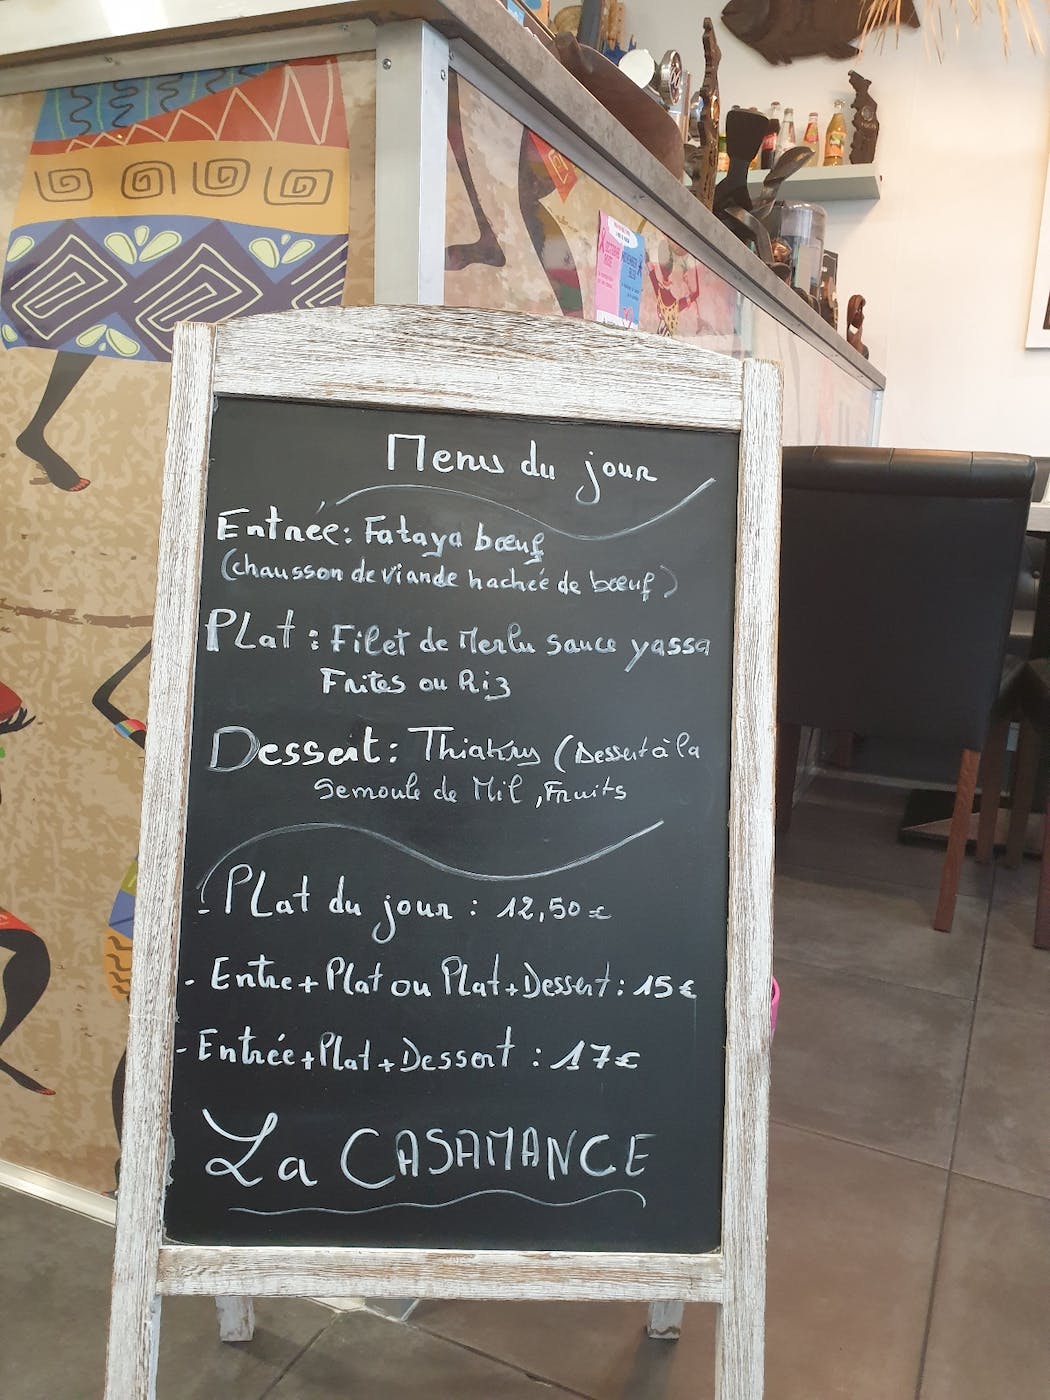 Menu du jour
Entrée : Fataya bœuf
(chausson de viande hachée de bœuf)
PLat : Filet de Merlu sauce yassa
Frites ou Riz
Dessert : Thiakry (Dessert à la
Semoule de Mil, Fruits
- PLat du jour : 12,50 €
- Entre + Plat ou Plat + Dessert : 15 €
- Entrée + Plat + Dessert : 17 €
La CASAMANCE